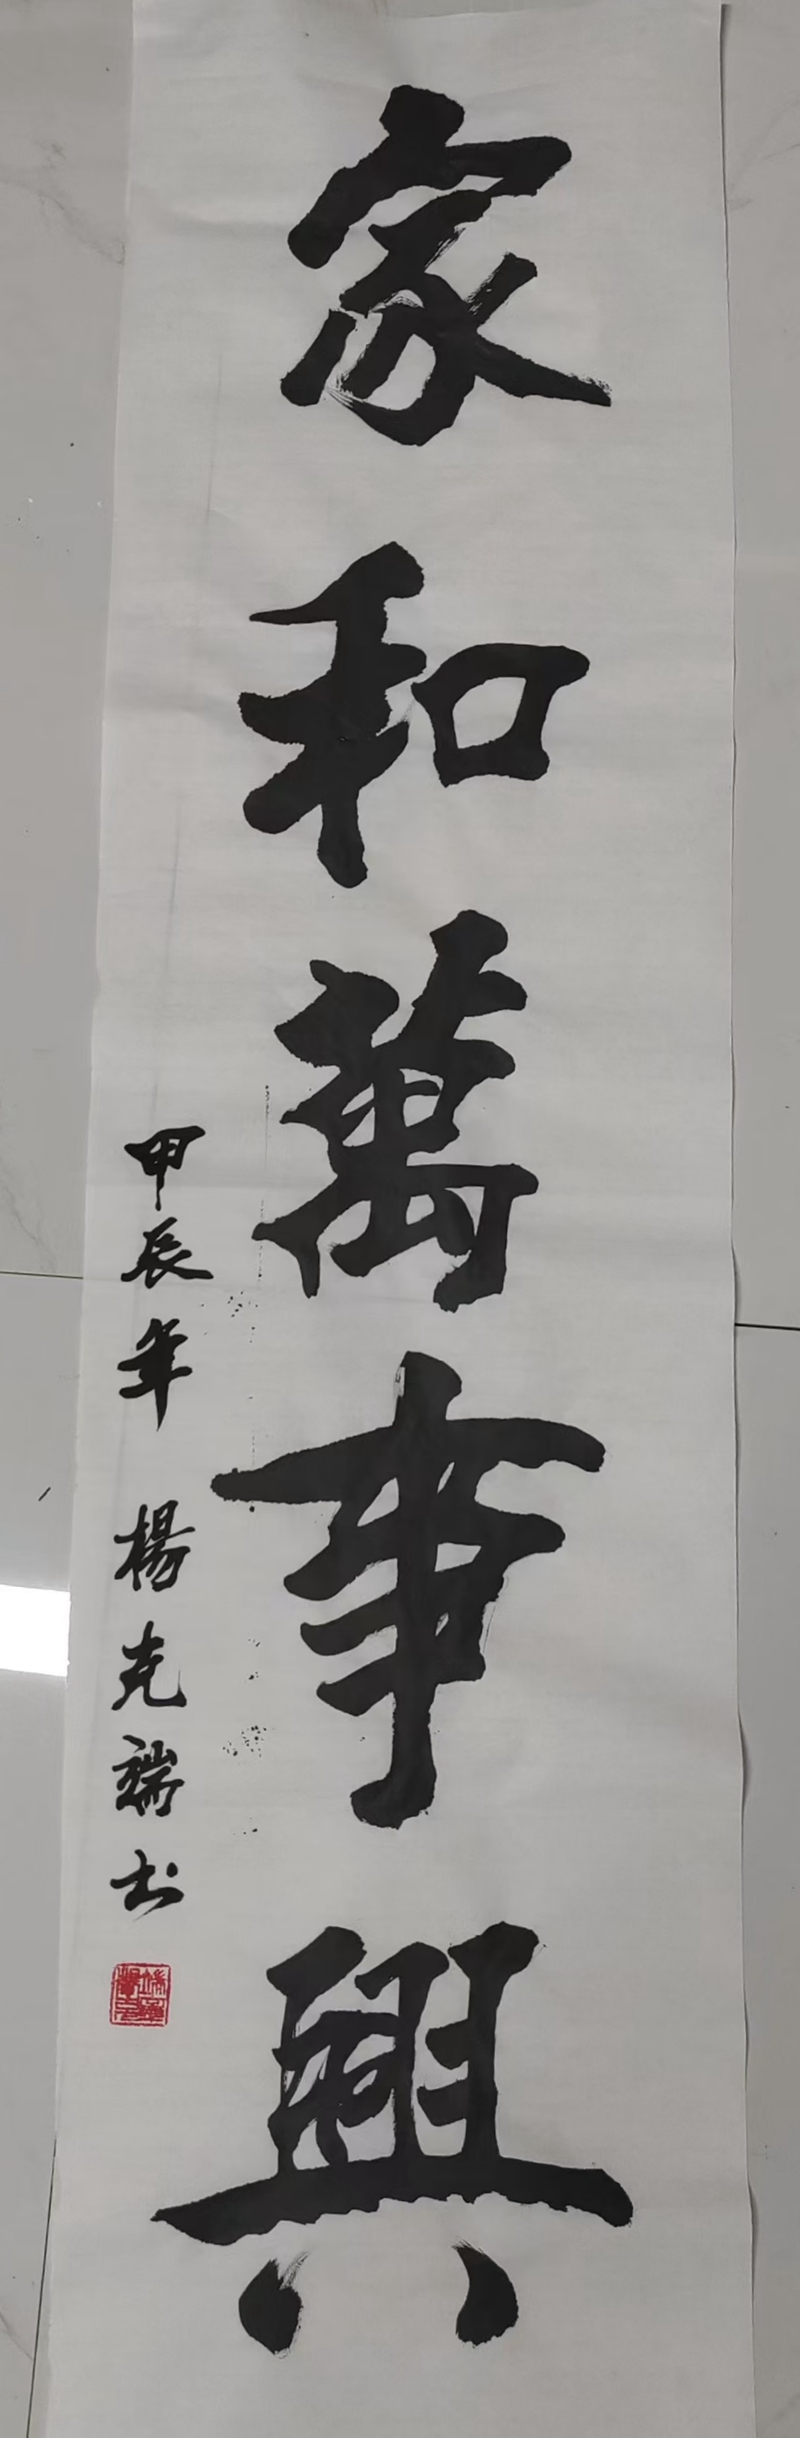 家和萬事興
甲辰年 楊克端书